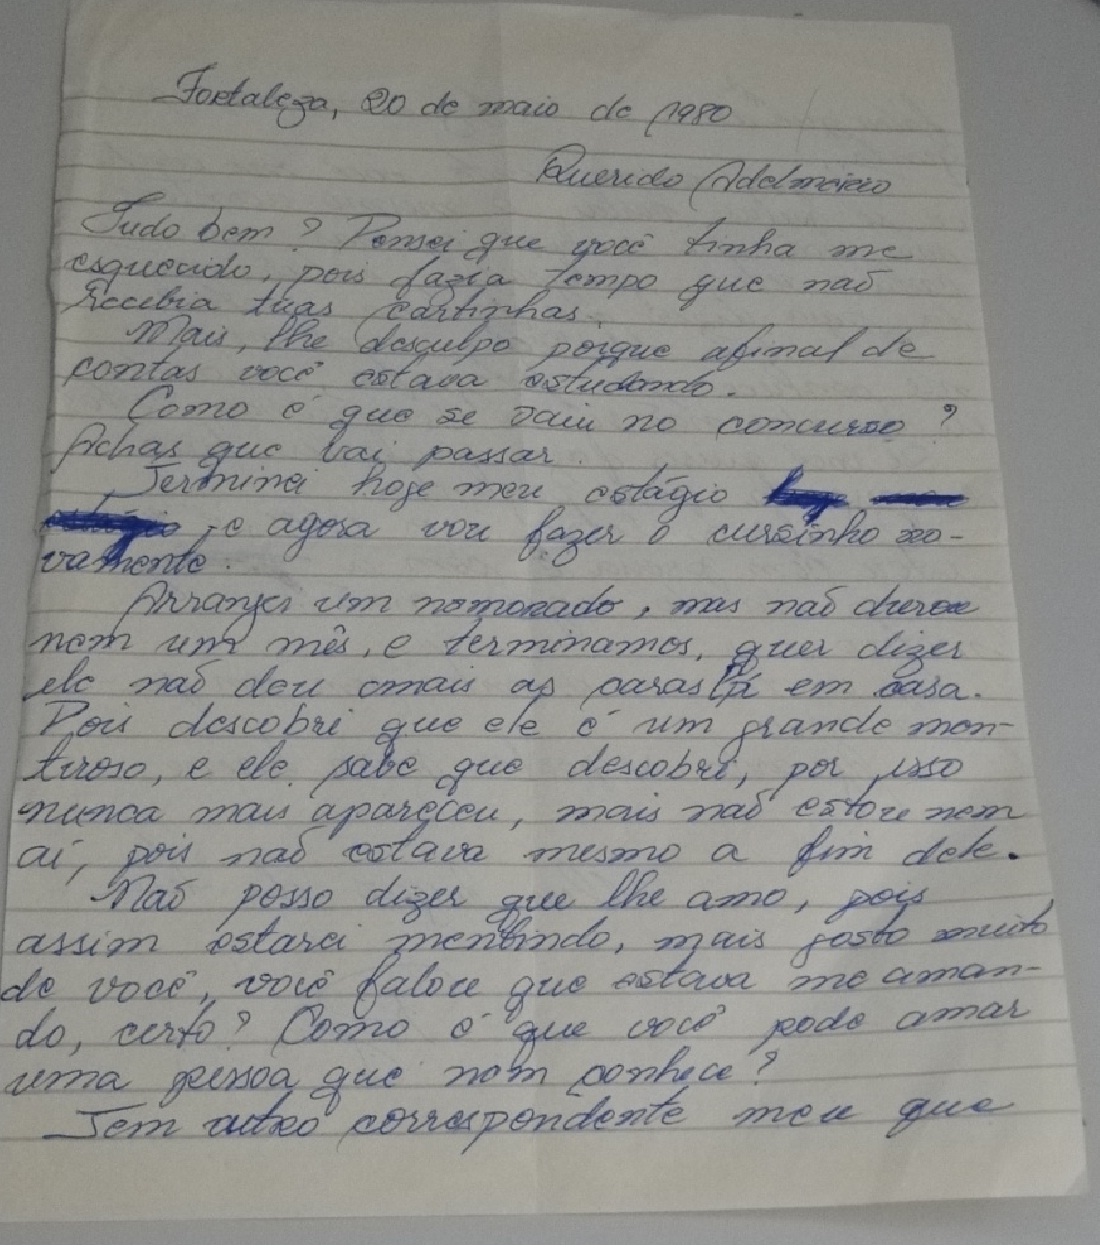 Fortaleza, 20 de maio de 1980
Querido Adelmário
Tudo bem? Pensei que você tinha me
esquecido, pois fazia tempo que não
recebia tuas cartinhas.
Mais, lhe desculpo porque afinal de
contas você estava estudando.
Como é que se saiu no concurso?
Achas que vai passar.
Terminei hoje meu estágio
e agora vou fazer o cursinho no-
vamente.
Arranjei um namorado, mas não durou
nem um mês, e terminamos, quer dizer
ele não deu mais as caras lá em casa.
Pois descobri que ele é um grande men-
tiroso, e ele sabe que descobri, por isso
nunca mais apareceu, mais não estou nem
aí, pois não estava mesmo a fim dele.
Não posso dizer que lhe amo, pois
assim estarei mentindo, mais gosto muito
de você, você falou que estava me aman-
do, certo? Como é que você pode amar
uma pessoa que nem conhece?
Tem outro correspondente meu que